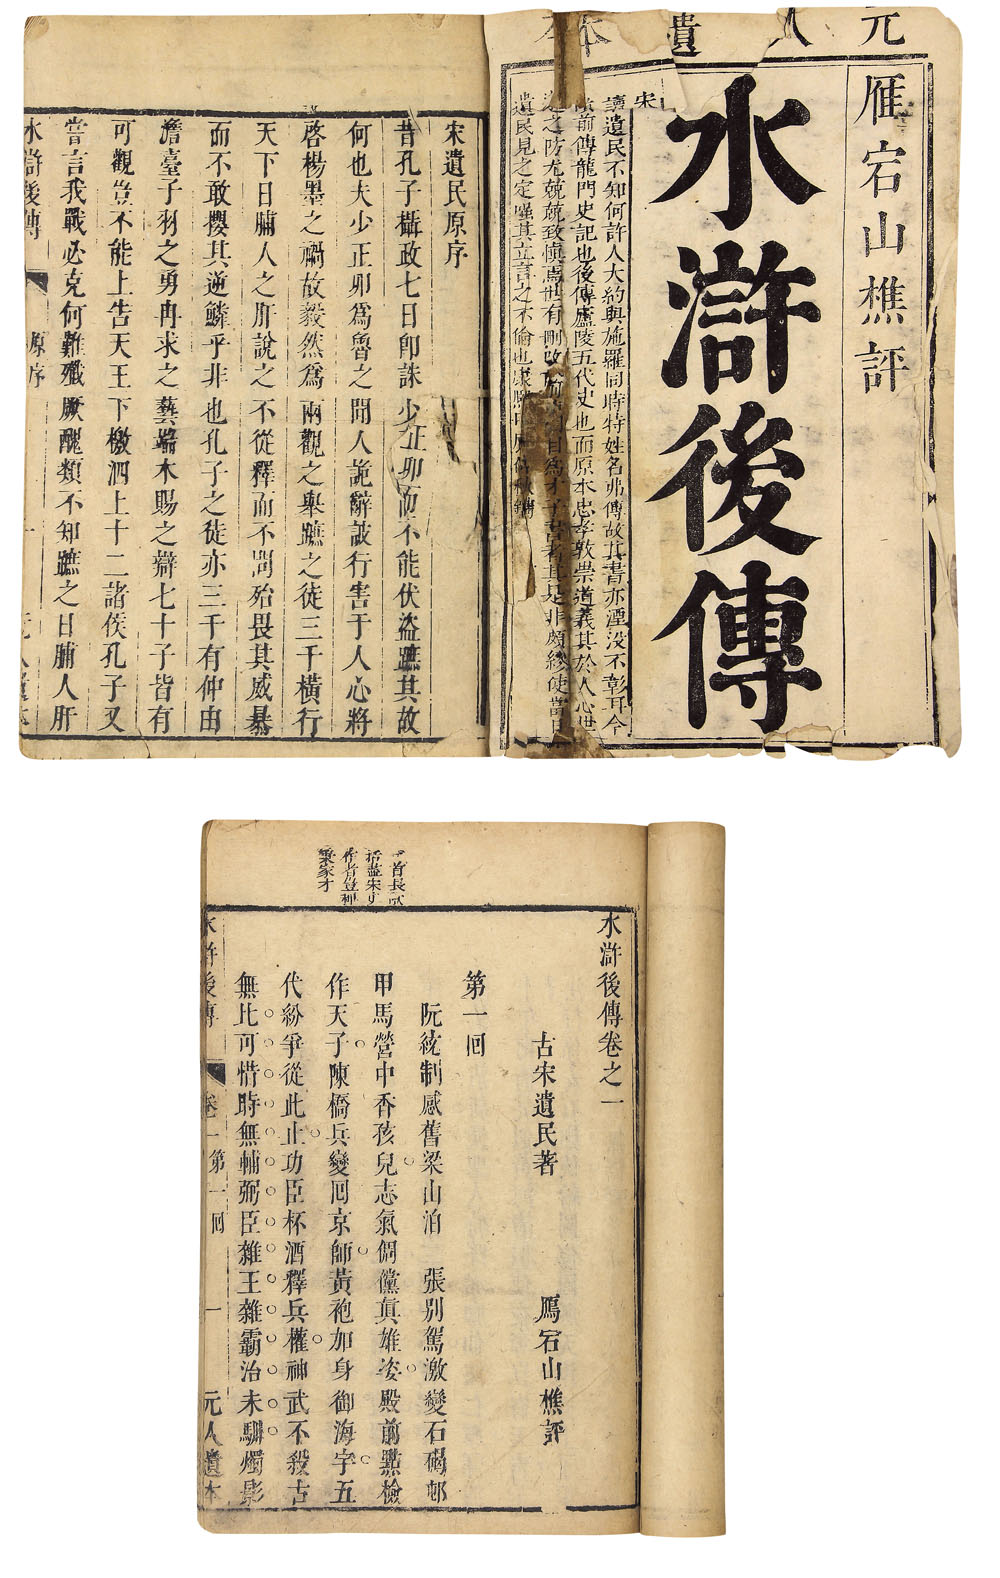 元人遺本
雁宕山樵評
水滸後傳
宋
遺民不知何許人大約與施羅同時特姓名弗傳故其書亦湮没不彰耳今
前傳龍門史記也後傳盧陵五代史也而原本忠孝敦崇道義其於人心世
之防尤兢兢致慎焉世有刪改前 目為才子書者其是非頗繆使當日
遺民見之定嗤其立言之不倫也
宋遺民原序
昔孔子攝政七日卽誅少正卯而不能伏盜蹠其故
何也夫少正卯為魯之聞人詭辭詖行害于人心將
啓楊墨之禍故毅然為兩觀之舉蹠之徒三千橫行
天下日脯人之肝說之不從釋而不問殆畏其威暴
而不敢攖其逆鱗乎非也孔子之徒亦三千有仲由
澹臺子羽之勇冉求之藝端木賜之辯七十子皆有
可觀豈不能上告天王下檄泗上十二諸侯孔子又
嘗言我戰必克何難殲厥醜類不知蹠之日脯人肝
水滸後傳
原序
一
元人遺本
水滸後傳卷之一
古宋遺民著
鴈宕山樵評
第一回
阮統制感舊梁山泊 張別駕激變石碣邨
甲馬營中香孩兒志氣倜儻眞雄姿殿前點檢
作天子陳橋兵變回京師黃袍加身御海宇五
代紛爭從此止功臣杯酒釋兵權神武不殺古
無比可惜時無輔弼臣雜王雜霸治未馴燭影
首長
括盡宋史
作者豈稗
家才
水滸後傳
卷一第一回
一
元人遺本